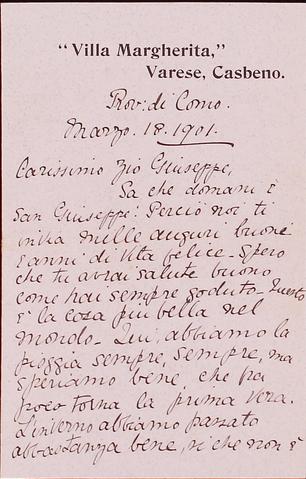 "Villa Margherita,"
Varese, Casbeno.
Prov: di Como.
Marzo. 18. 1901.
Carissimo Zio Giuseppe,
Sa che domani è
San Giuseppe! Perciò noi ti
mille auguri buoni
e anni di vita felice - Spero
che tu avrai salute buono
come hai sempre goduto - Questo
è la cosa piu bella nel
mondo - Qui, abbiamo la
pioggia sempre, sempre, ma
speriamo bene, che fra
poco torna la prima vera.
L'inverno abbiamo passato
abbastanza bene, si che non è